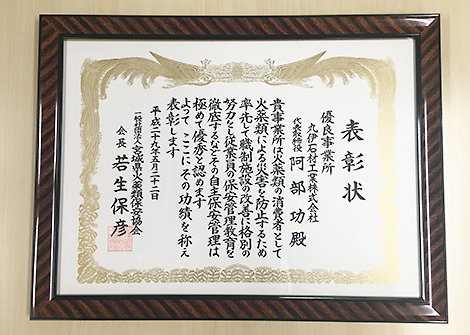 表彰状
優良事業所
丸伊石材工業株式会社
代表取締役 阿部功殿
貴事業所は火薬類の消費者として
火薬類による災害を防止するため
率先して職制施設の改善に格別の
努力をし従業員の保安管理教育を
徹底するなどその自主保安管理は
極めて優秀と認めます
よってここにその功績を称え
表彰します
平成二十九年五月二十二日
一般社団法人宮城県火薬類保安協会
会長 若生保彦